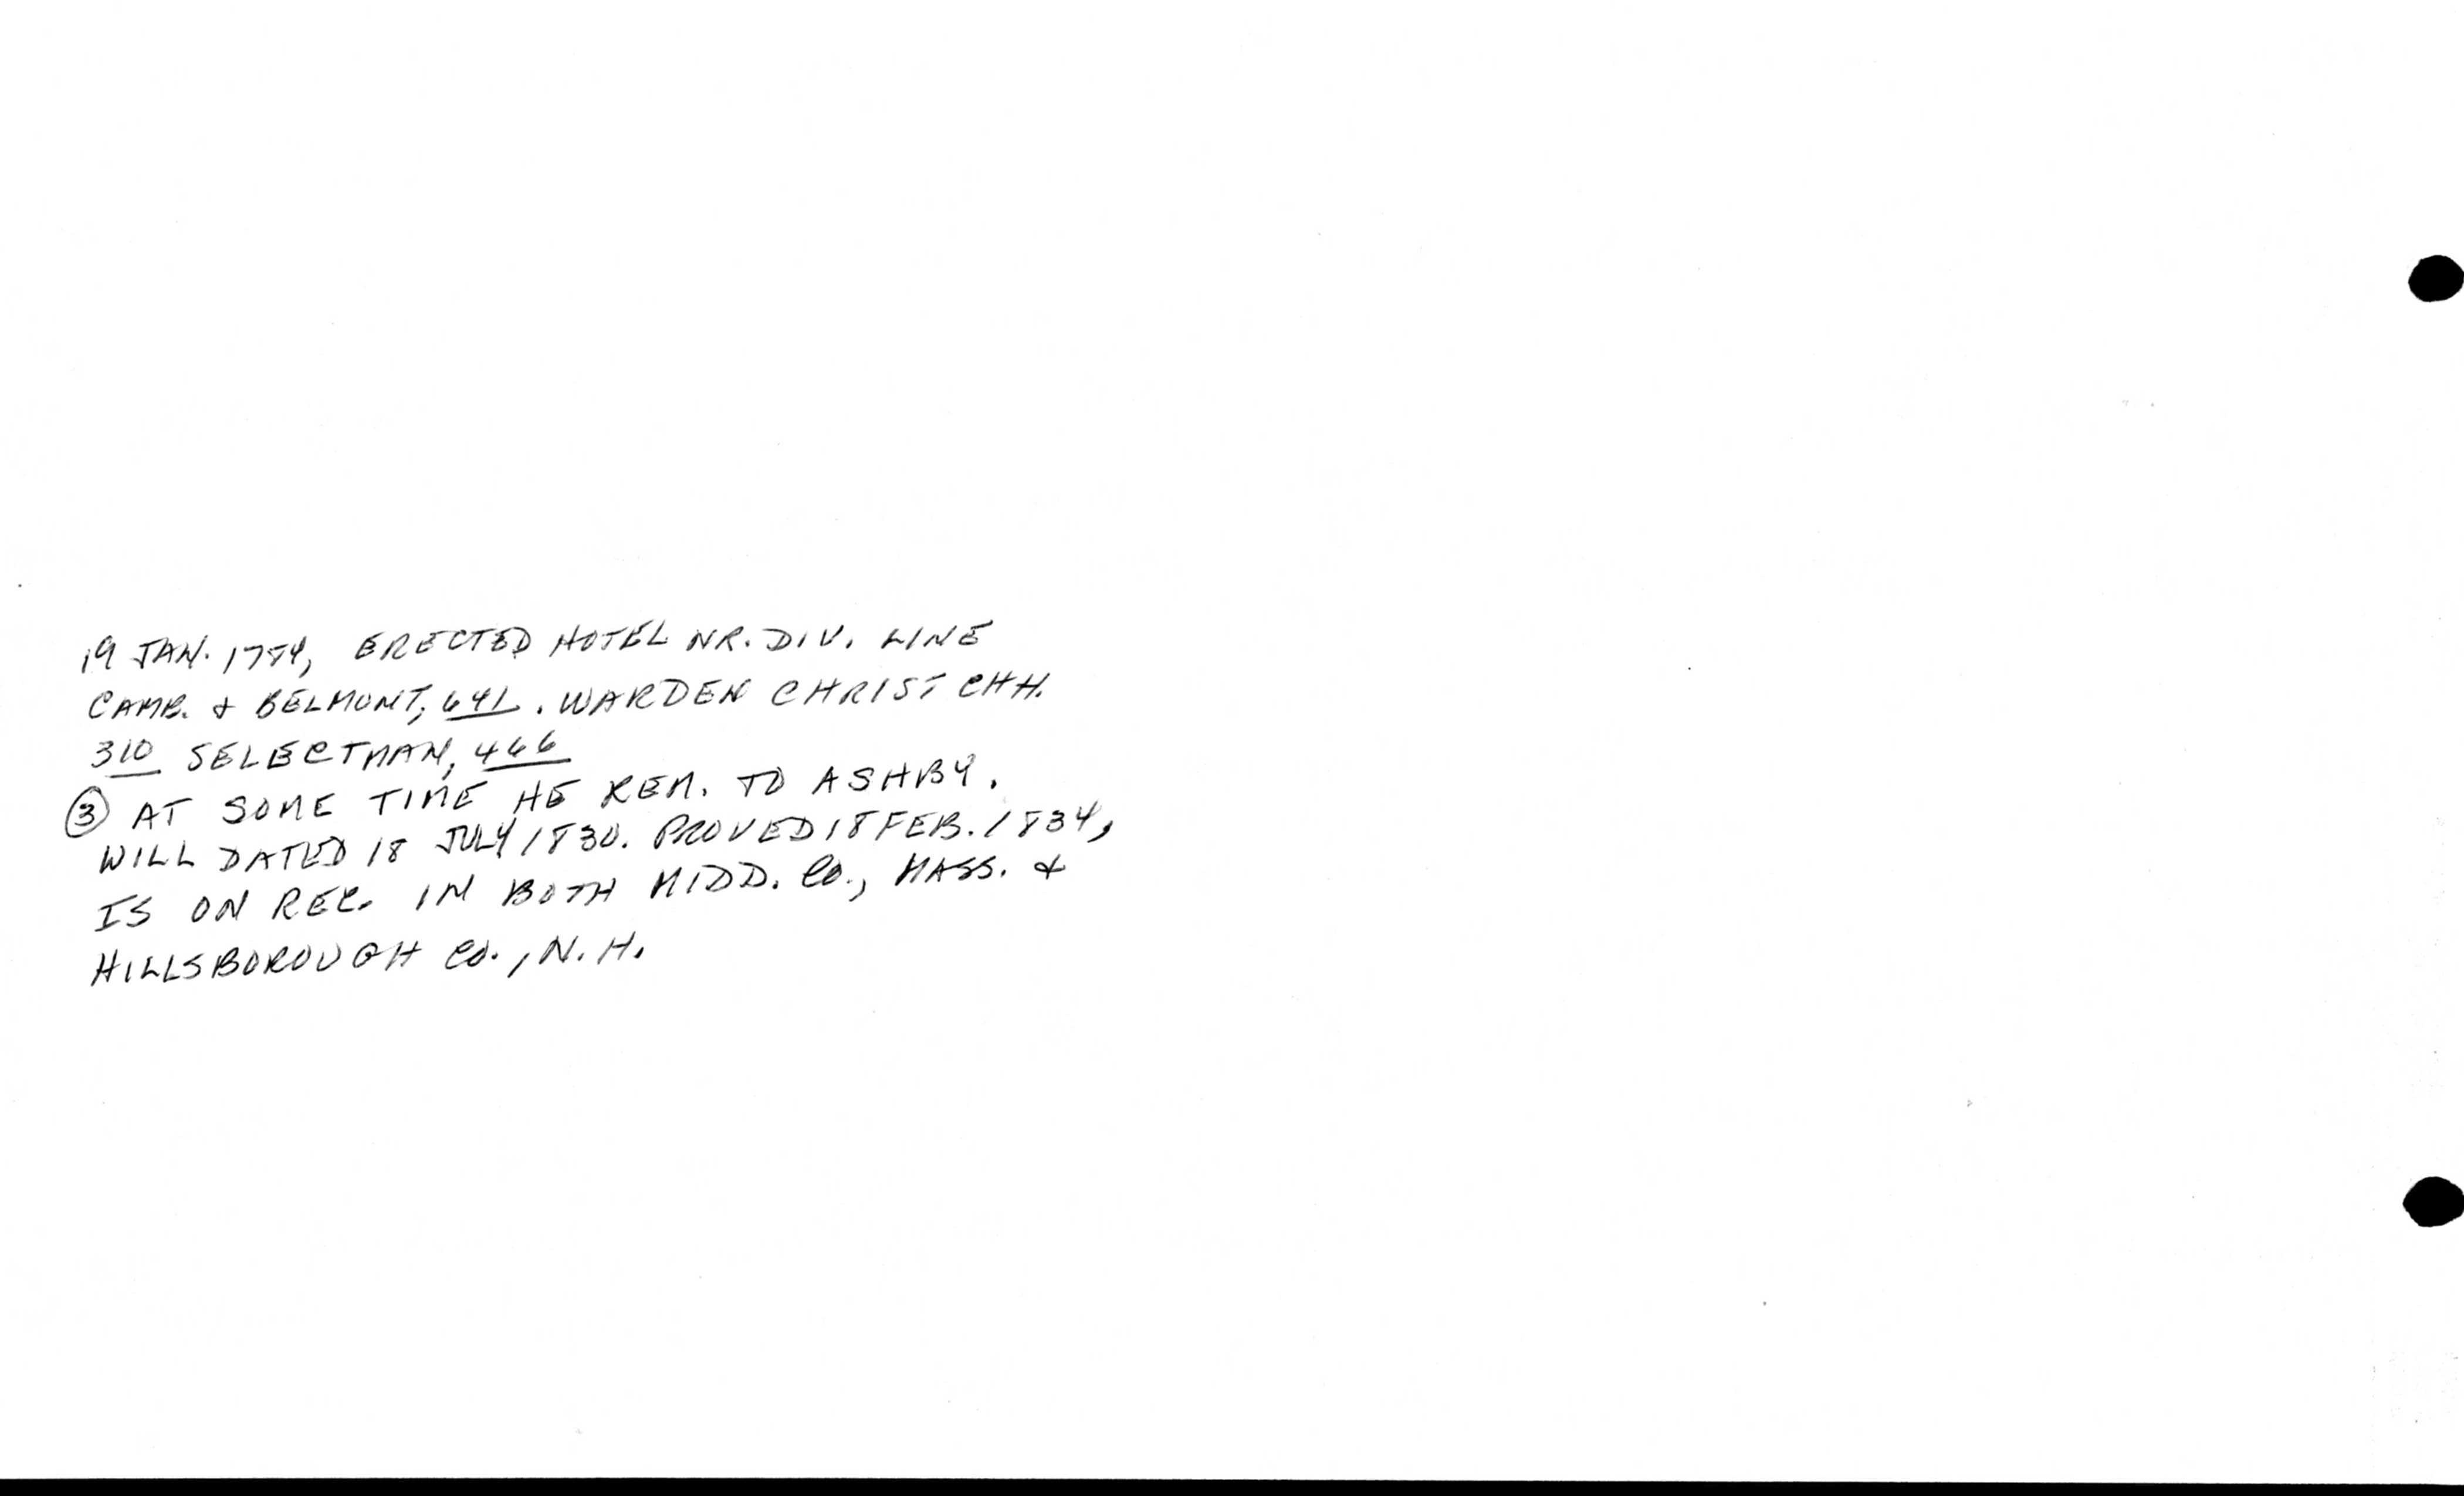 19 JAN. 1784, ERECTED HOTEL NR. DIV. LINE
CAMB. & BELMONT, 641. WARDEN CHRIST CHH.
310 SELECTMAN, 466
③ AT SOME TIME HE REM. TO ASHBY.
WILL DATED 18 JULY 1830. PROVED 18 FEB. 1834,
IS ON REC. IN BOTH MIDD. CO., MASS. &
HILLSBOROUGH CO., N.H.